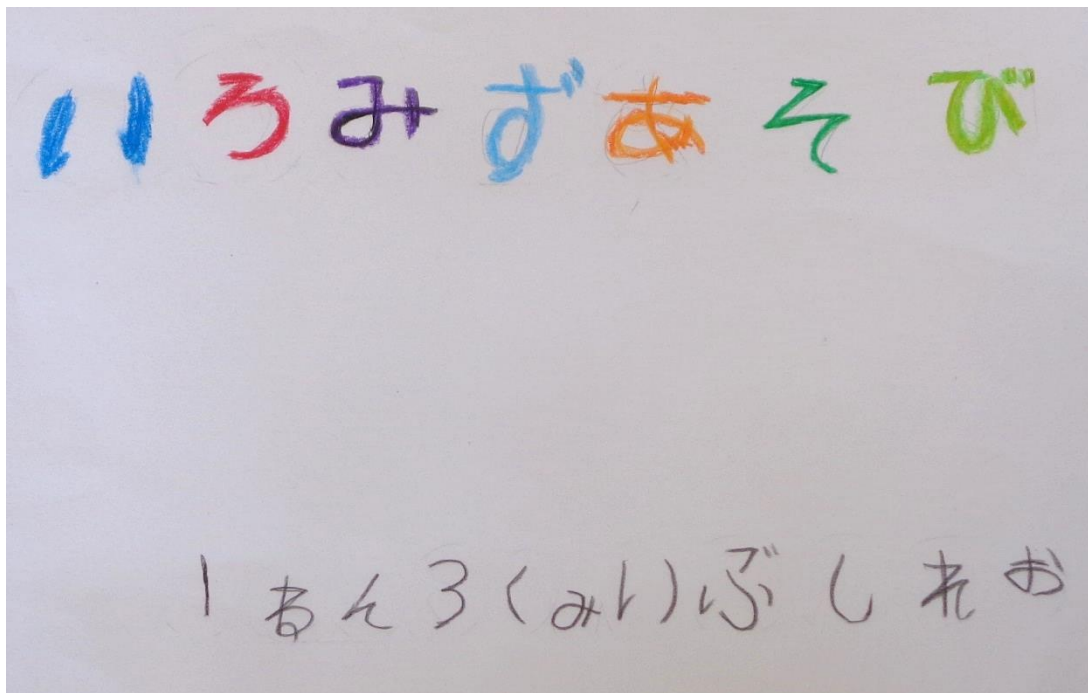 いろみずあそび
1ねん3くみいぶしれお